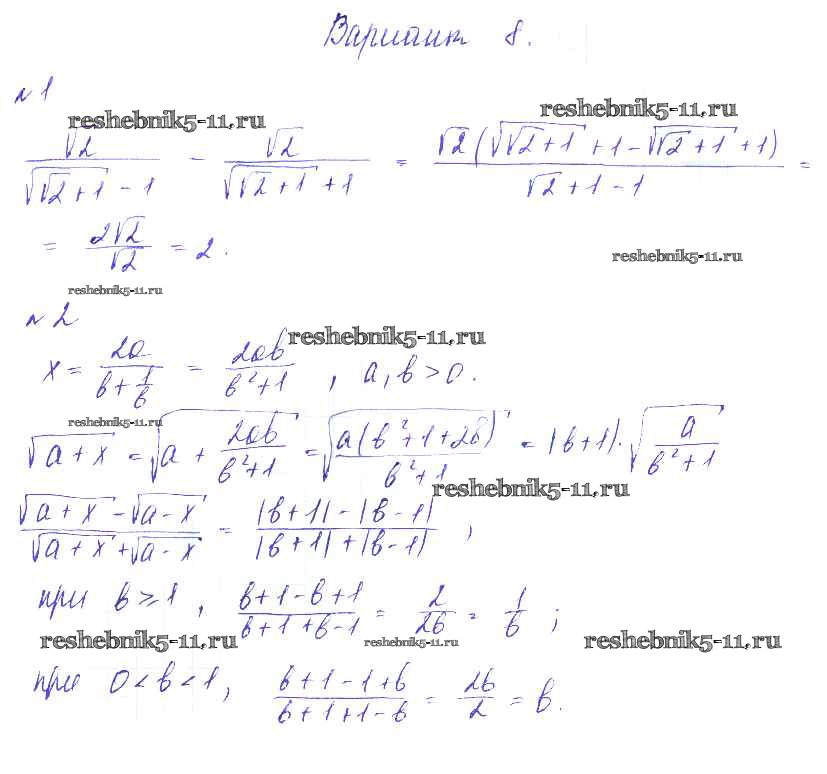 Вариант 8.
№1
reshebnik5-11.ru reshebnik5-11.ru
√2/(√(√2+1) - 1) - √2/(√(√2+1) + 1) = √2(√(√2+1) + 1 - √(√2+1) + 1)/(√2 + 1 - 1) =
= 2√2/√2 = 2.
reshebnik5-11.ru
reshebnik5-11.ru
№2
reshebnik5-11.ru
x = 2a/(b + 1/b) = 2ab/(b²+1), a, b > 0.
reshebnik5-11.ru
√(a+x) = √(a + 2ab/(b²+1)) = √(a(b²+1+2b)/(b²+1)) = |b+1|·√(a/(b²+1))
reshebnik5-11.ru
(√(a+x) - √(a-x))/(√(a+x) + √(a-x)) = (|b+1| - |b-1|)/(|b+1| + |b-1|),
при b ≥ 1, (b+1-b+1)/(b+1+b-1) = 2/2b = 1/b;
reshebnik5-11.ru reshebnik5-11.ru reshebnik5-11.ru
при 0 < b < 1, (b+1-1+b)/(b+1+1-b) = 2b/2 = b.